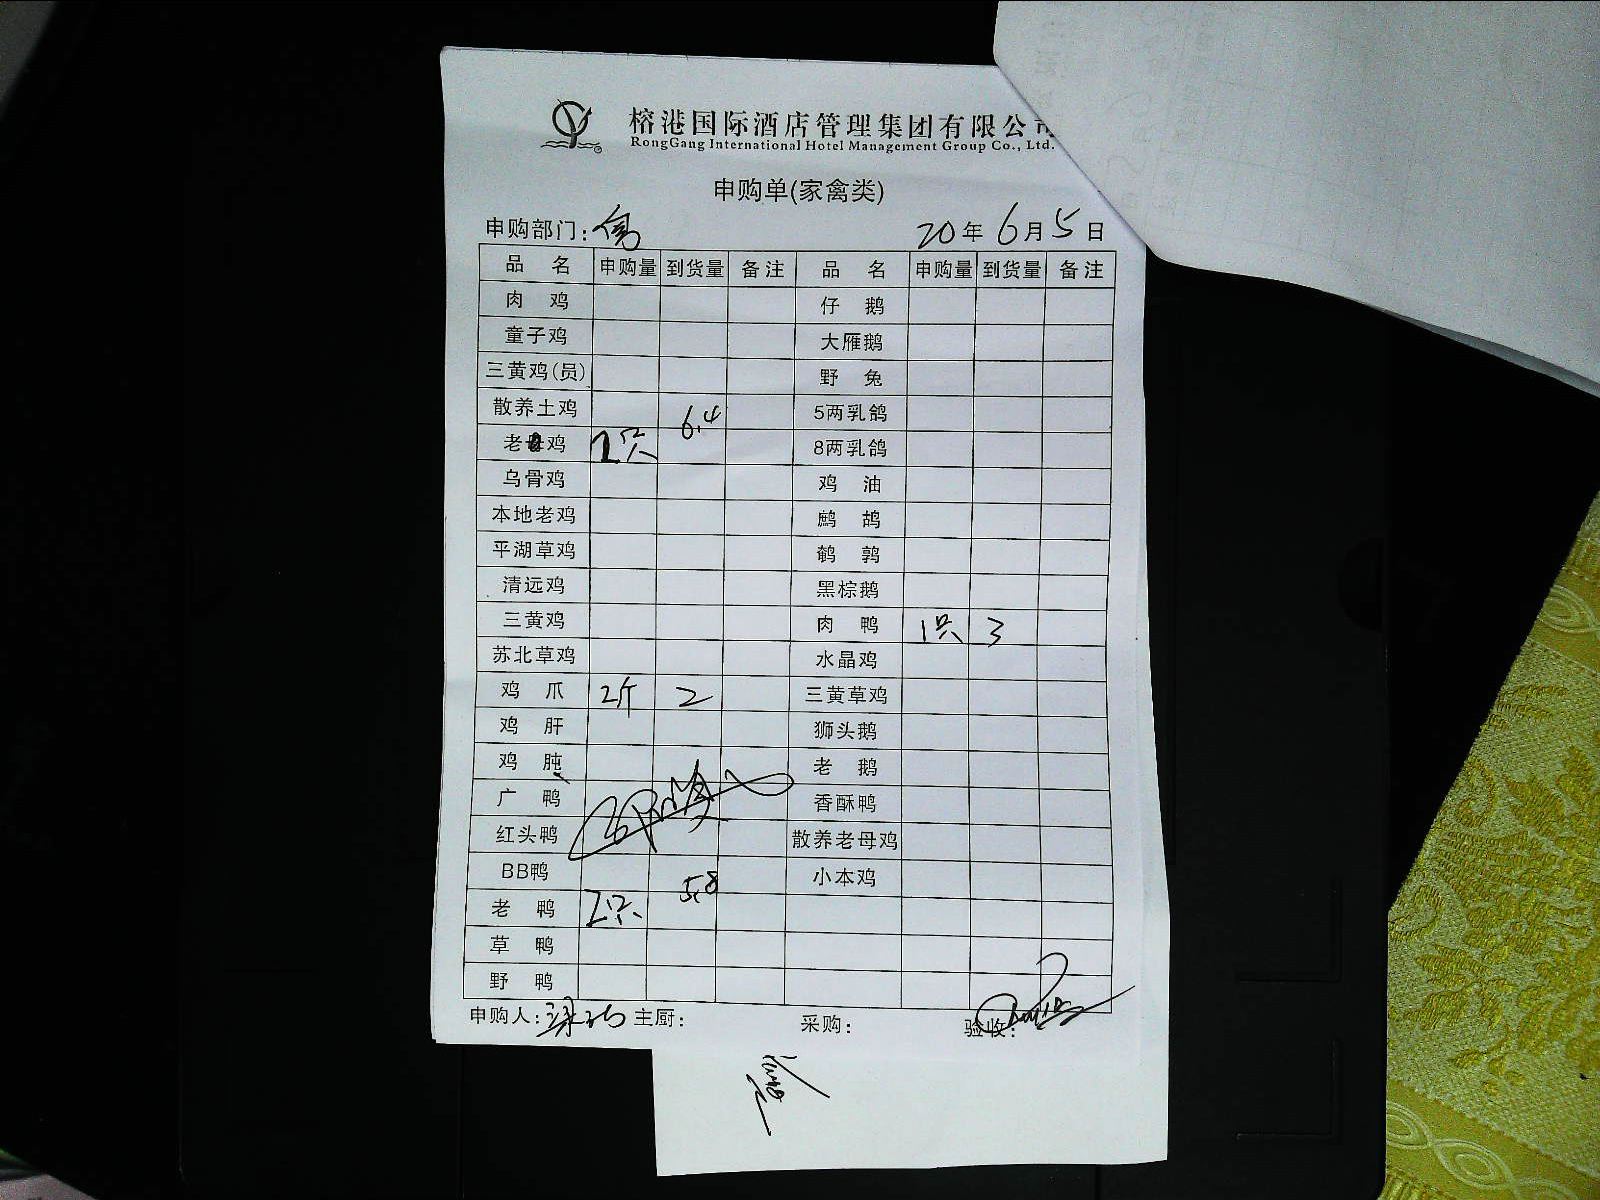 榕港国际酒店管理集团有限公司
RongGang International Hotel Management Group Co., Ltd.
申购单(家禽类)
申购部门: 20年 6月 5日
品 名 申购量 到货量 备注 品 名 申购量 到货量 备注
肉 鸡 仔 鹅
童子鸡 大雁鹅
三黄鸡(员) 野 兔
散养土鸡 5两乳鸽
老母鸡 2只 6.4 8两乳鸽
乌骨鸡 鸡 油
本地老鸡 鹧 鸪
平湖草鸡 鹌 鹑
清远鸡 黑棕鹅
三黄鸡 肉 鸭 1只 3
苏北草鸡 水晶鸡
鸡 爪 2斤 2 三黄草鸡
鸡 肝 狮头鹅
鸡 肫 老 鹅
广 鸭 香酥鸭
红头鸭 散养老母鸡
BB鸭 小本鸡
老 鸭 2只 5.8
草 鸭
野 鸭
申购人: 主厨: 采购: 验收: